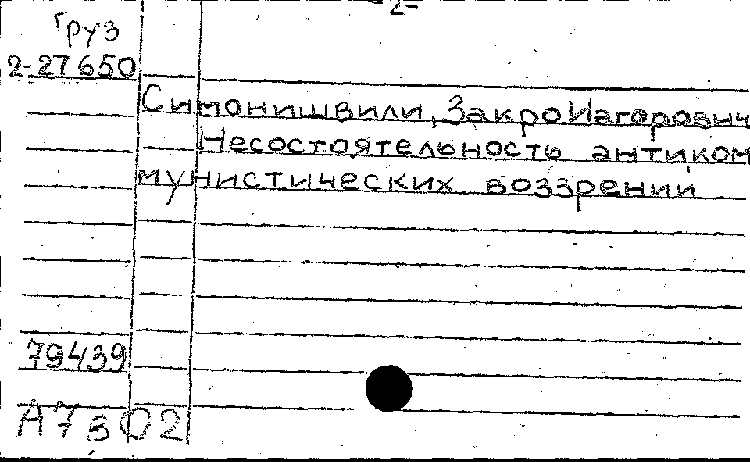 -2-
Груз
2-27650
Симонишвили, Закро Иагорович
Несостоятельность антиком
мунистических воззрений
79439
А7302